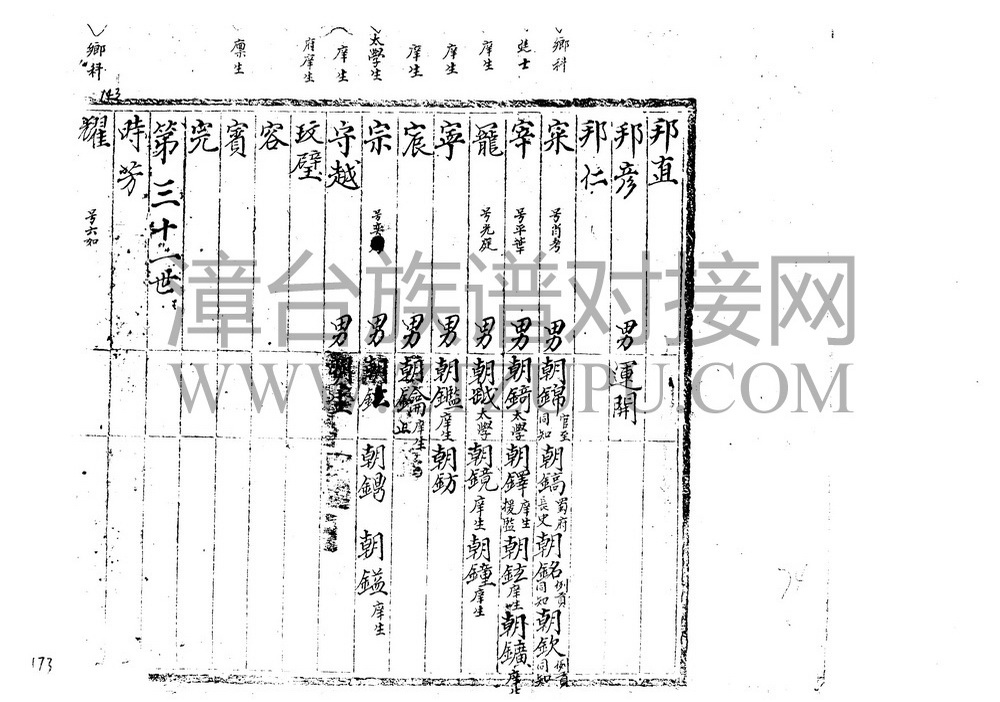 邦直
邦彦 男 運開
邦仁
鄉科 寀 号肖考 男 朝錦 官至同知 朝鎬 蜀府長史 朝銘 例貢同知 朝欽 例貢同知
進士 宰 号平葉 男 朝錡 太学 朝鐸 庠生援監 朝鉉 庠生 朝鑛 庠生
庠生 寵 号光庭 男 朝鉞 太学 朝鏡 庠生 朝鐘 庠生
庠生 寧 男 朝鑑 庠生 朝鈁
庠生 宸 男 朝鑰 庠生
太学生 宗 号奕 男 朝 朝鍚 朝鎰 庠生
庠生 守越 男
府庠生 玟璧
容
廪生 賓
完
第三十一世
時芳
鄉科 耀 号六如
143
173
74
漳台族谱对接网
WWW.ZTZUPU.COM